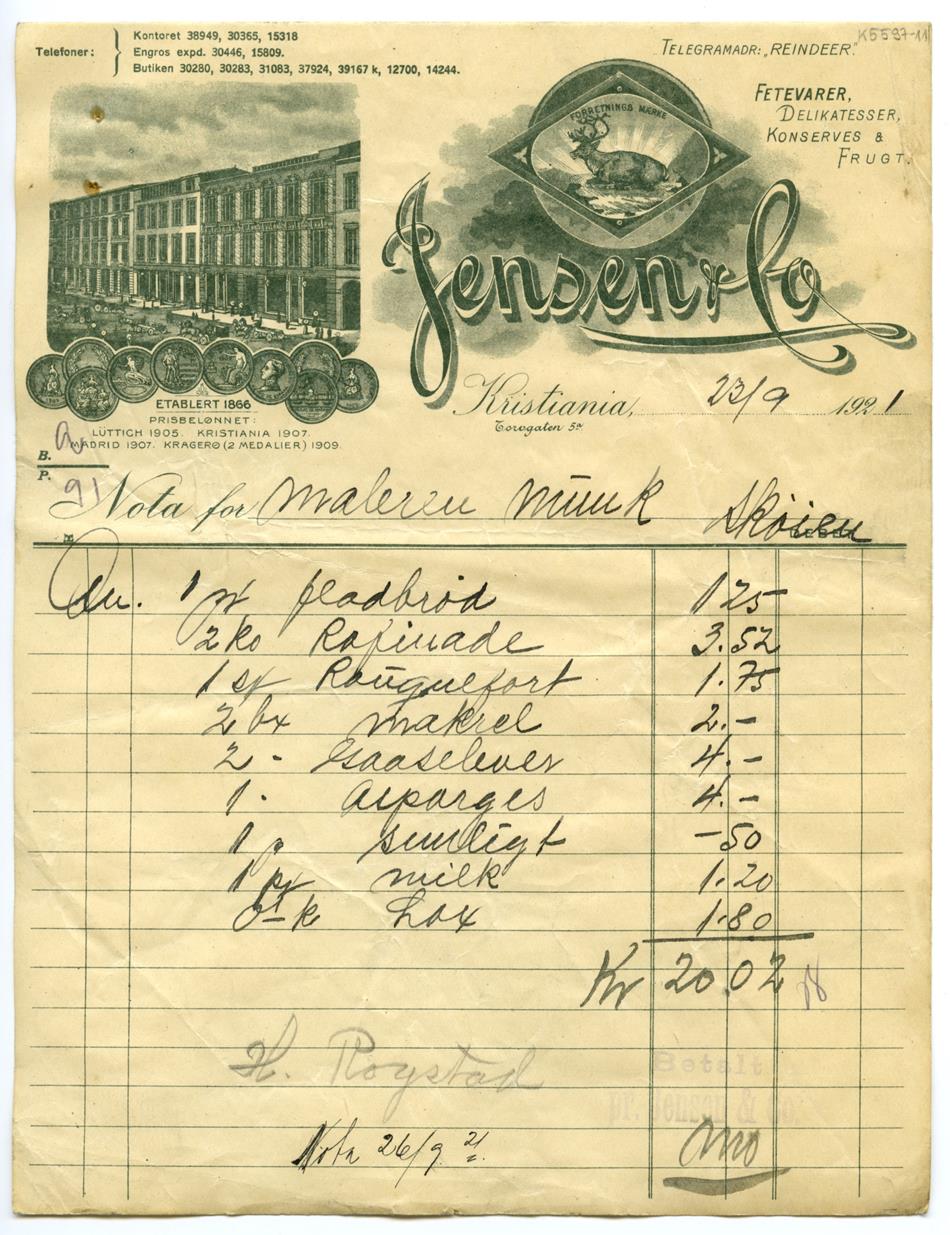 Telefoner:
Kontoret 38949, 30365, 15318
Engros expd. 30446, 15809.
Butiken 30280, 30283, 31083, 37924, 39167 k, 12700, 14244.
K5597-11
TELEGRAMADR: „REINDEER"
FETEVARER,
DELIKATESSER,
KONSERVES &
FRUGT.
FORRETNINGS MÆRKE
Jensen & Co
ETABLERT 1866
PRISBELØNNET:
LÜTTICH 1905. KRISTIANIA 1907.
MADRID 1907. KRAGERØ (2 MEDALIER) 1909.
Kristiania, 23/9 1921
Torvgaten 5a
B.
P. 91
Nota for Maleren Munk Skøien
1 pk fladbrød 1 25
2 ko Rafinade 3.52
1 st Rouquefort 1.75
2 bx makrel 2.-
2 - Gaaselever 4.-
1 - Asparges 4.-
1 p sunligt -50
1 milk 1.20
k Lax 1.80
Kr 20.02
H. Rogstad
Betalt
pr. Jensen & Co.
Nota 26/9 21.